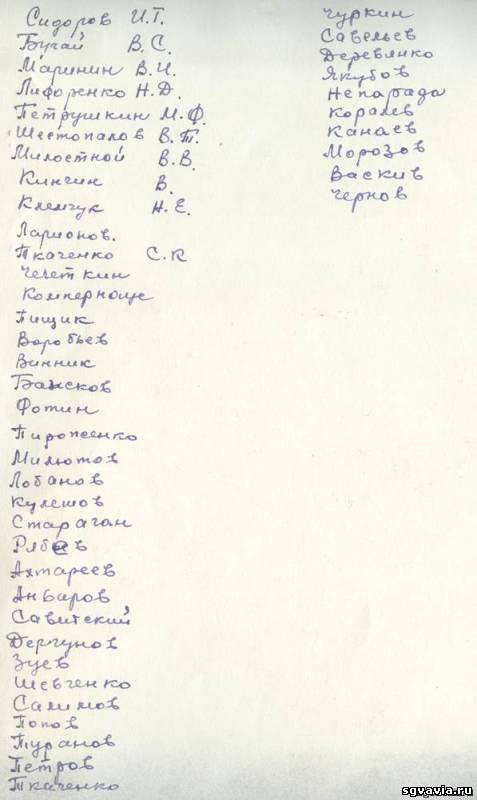 Сидоров И.Г.
Бугай В.С.
Маринин В.И.
Лифоренко Н.Д.
Петрушкин М.Ф.
Шестопалов В.Т.
Милостной В.В.
Кинчин В.
Клемчук Н.Е.
Ларионов.
Ткаченко С.К
Чечеткин
Пищик
Воробьев
Винник
Фотин
Пироженко
Милютов
Лобанов
Кулешов
Стараган
Ахтареев
Анваров
Савитский
Дергунов
Зуев
Шевченко
Салимов
Попов
Туранов
Петров
Ткаченко
Чуркин
Савельев
Деревянко
Якубов
Непарада
Королев
Канаев
Морозов
Васкив
Чернов
sgvavia.ru